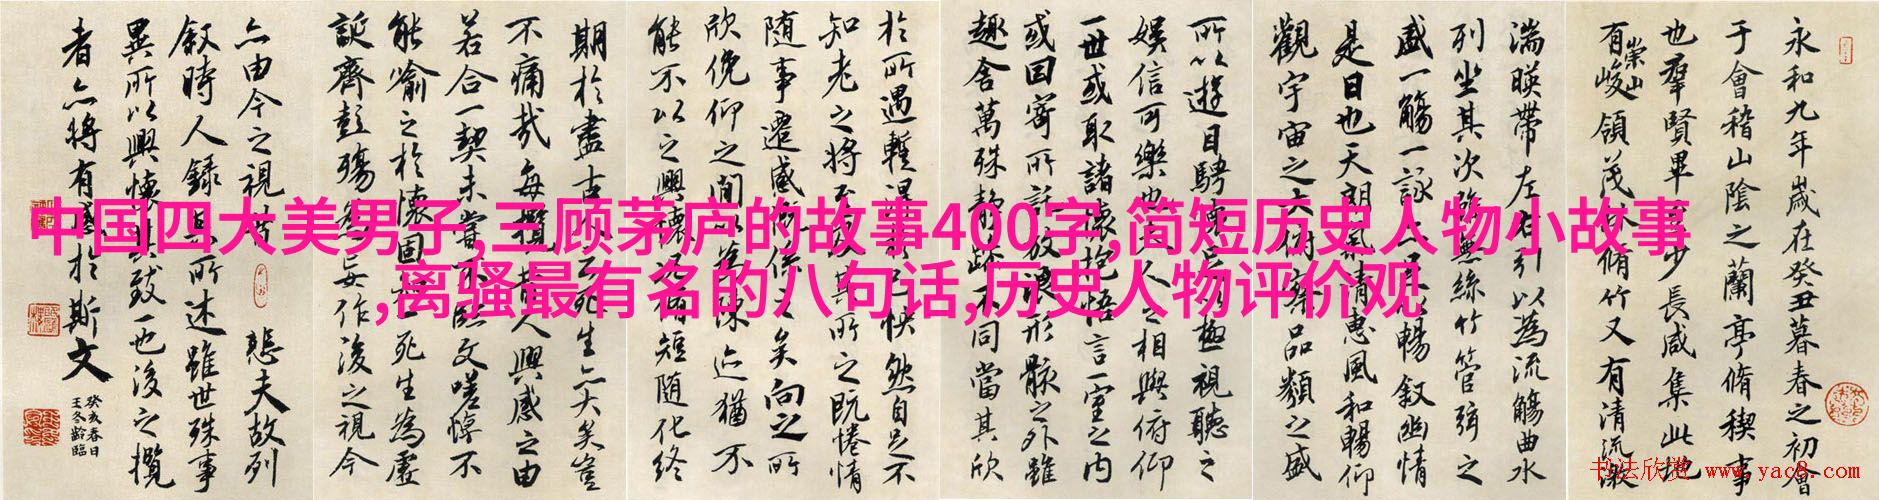 永和九年歲在癸丑暮春之初會
于會稽山陰之蘭亭脩稧事
也羣賢畢至少長咸集此地
有崇山峻領茂林脩竹又有清流激
湍暎帶左右引以為流觴曲水
列坐其次雖無絲竹管弦之
盛一觴一詠亦足以暢敘幽情
是日也天朗氣清惠風和暢仰
觀宇宙之大俯察品類之盛
所以遊目騁懷足以極視聽之
娛信可樂也夫人之相與俯仰
一世或取諸懷抱悟言一室之內
或因寄所託放浪形骸之外雖
趣舍萬殊靜躁不同當其欣
於所遇蹔得於己快然自足不
知老之將至及其所之既惓情
隨事遷感慨係之矣向之所
欣俛仰之間以為陳迹猶不
能不以之興懷況脩短隨化終
期於盡古人云死生亦大矣豈
不痛哉每攬昔人興感之由
若合一契未嘗不臨文嗟悼不
能喻之於懷固知一死生為虛
誕齊彭殤為妄作後之視今
亦由今之視昔悲夫故列
敘時人錄其所述雖世殊事
異所以興懷其致一也後之攬
者亦將有感於斯文
癸亥春日
王冬齡臨
中国四大美男子,三顾茅庐的故事400字,简短历史人物小故事
,离骚最有名的八句话,历史人物评价观
书法欣赏 www.yac8.com